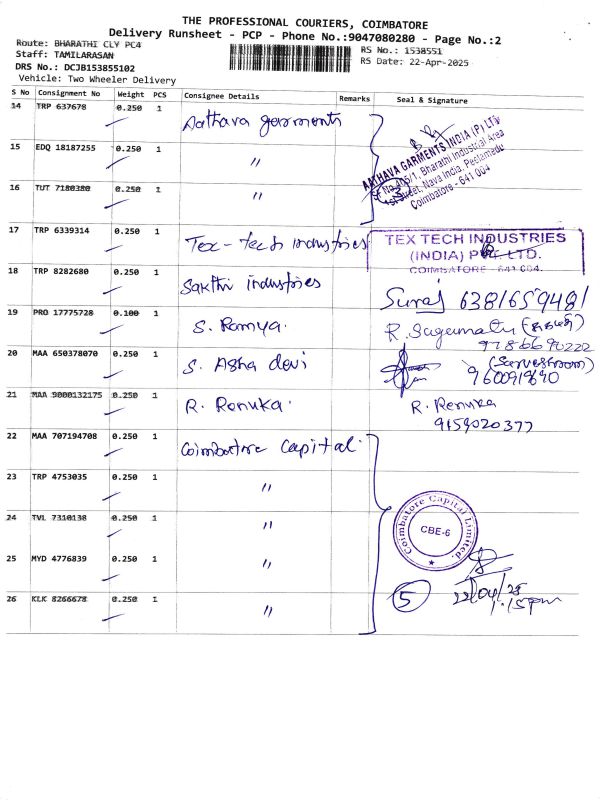 THE PROFESSIONAL COURIERS, COIMBATORE
Delivery Runsheet - PCP - Phone No.:9047080280 - Page No.:2
Route: BHARATHI CLY PC4
Staff: TAMILARASAN
DRS No.: DCJB153855102
Vehicle: Two Wheeler Delivery
RS No.: 1538551
RS Date: 22-Apr-2025
S No Consignment No Weight PCS Consignee Details Remarks Seal & Signature
14 TRP 637678 0.250 1 Aathava garments
15 EDQ 18187255 0.250 1 "
16 TUT 7180380 0.250 1 "
AATHAVA GARMENTS INDIA (P) LTD
1st Street, Nava India, Peelamedu
Coimbatore - 641 004
3
17 TRP 6339314 0.250 1 Tex-tech industries
TEX TECH INDUSTRIES
(INDIA) PVT. LTD.
COIMBATORE - 641 004.
18 TRP 8282680 0.250 1 Sakthi industries Suraj 6381659481
19 PRO 17775728 0.100 1 S. Ramya. R.
9786690222
20 MAA 650378070 0.250 1 S. Asha devi
21 MAA 9000132175 0.250 1 R. Renuka. R. Renuka
9159020377
22 MAA 707194708 0.250 1 Coimbatore Capital
23 TRP 4753035 0.250 1 "
24 TVL 7310138 0.250 1 "
25 MYD 4776839 0.250 1 "
26 KLK 8266678 0.250 1 "
Coimbatore Capital Limited.
CBE-6
5
22/04/25
1.15pm